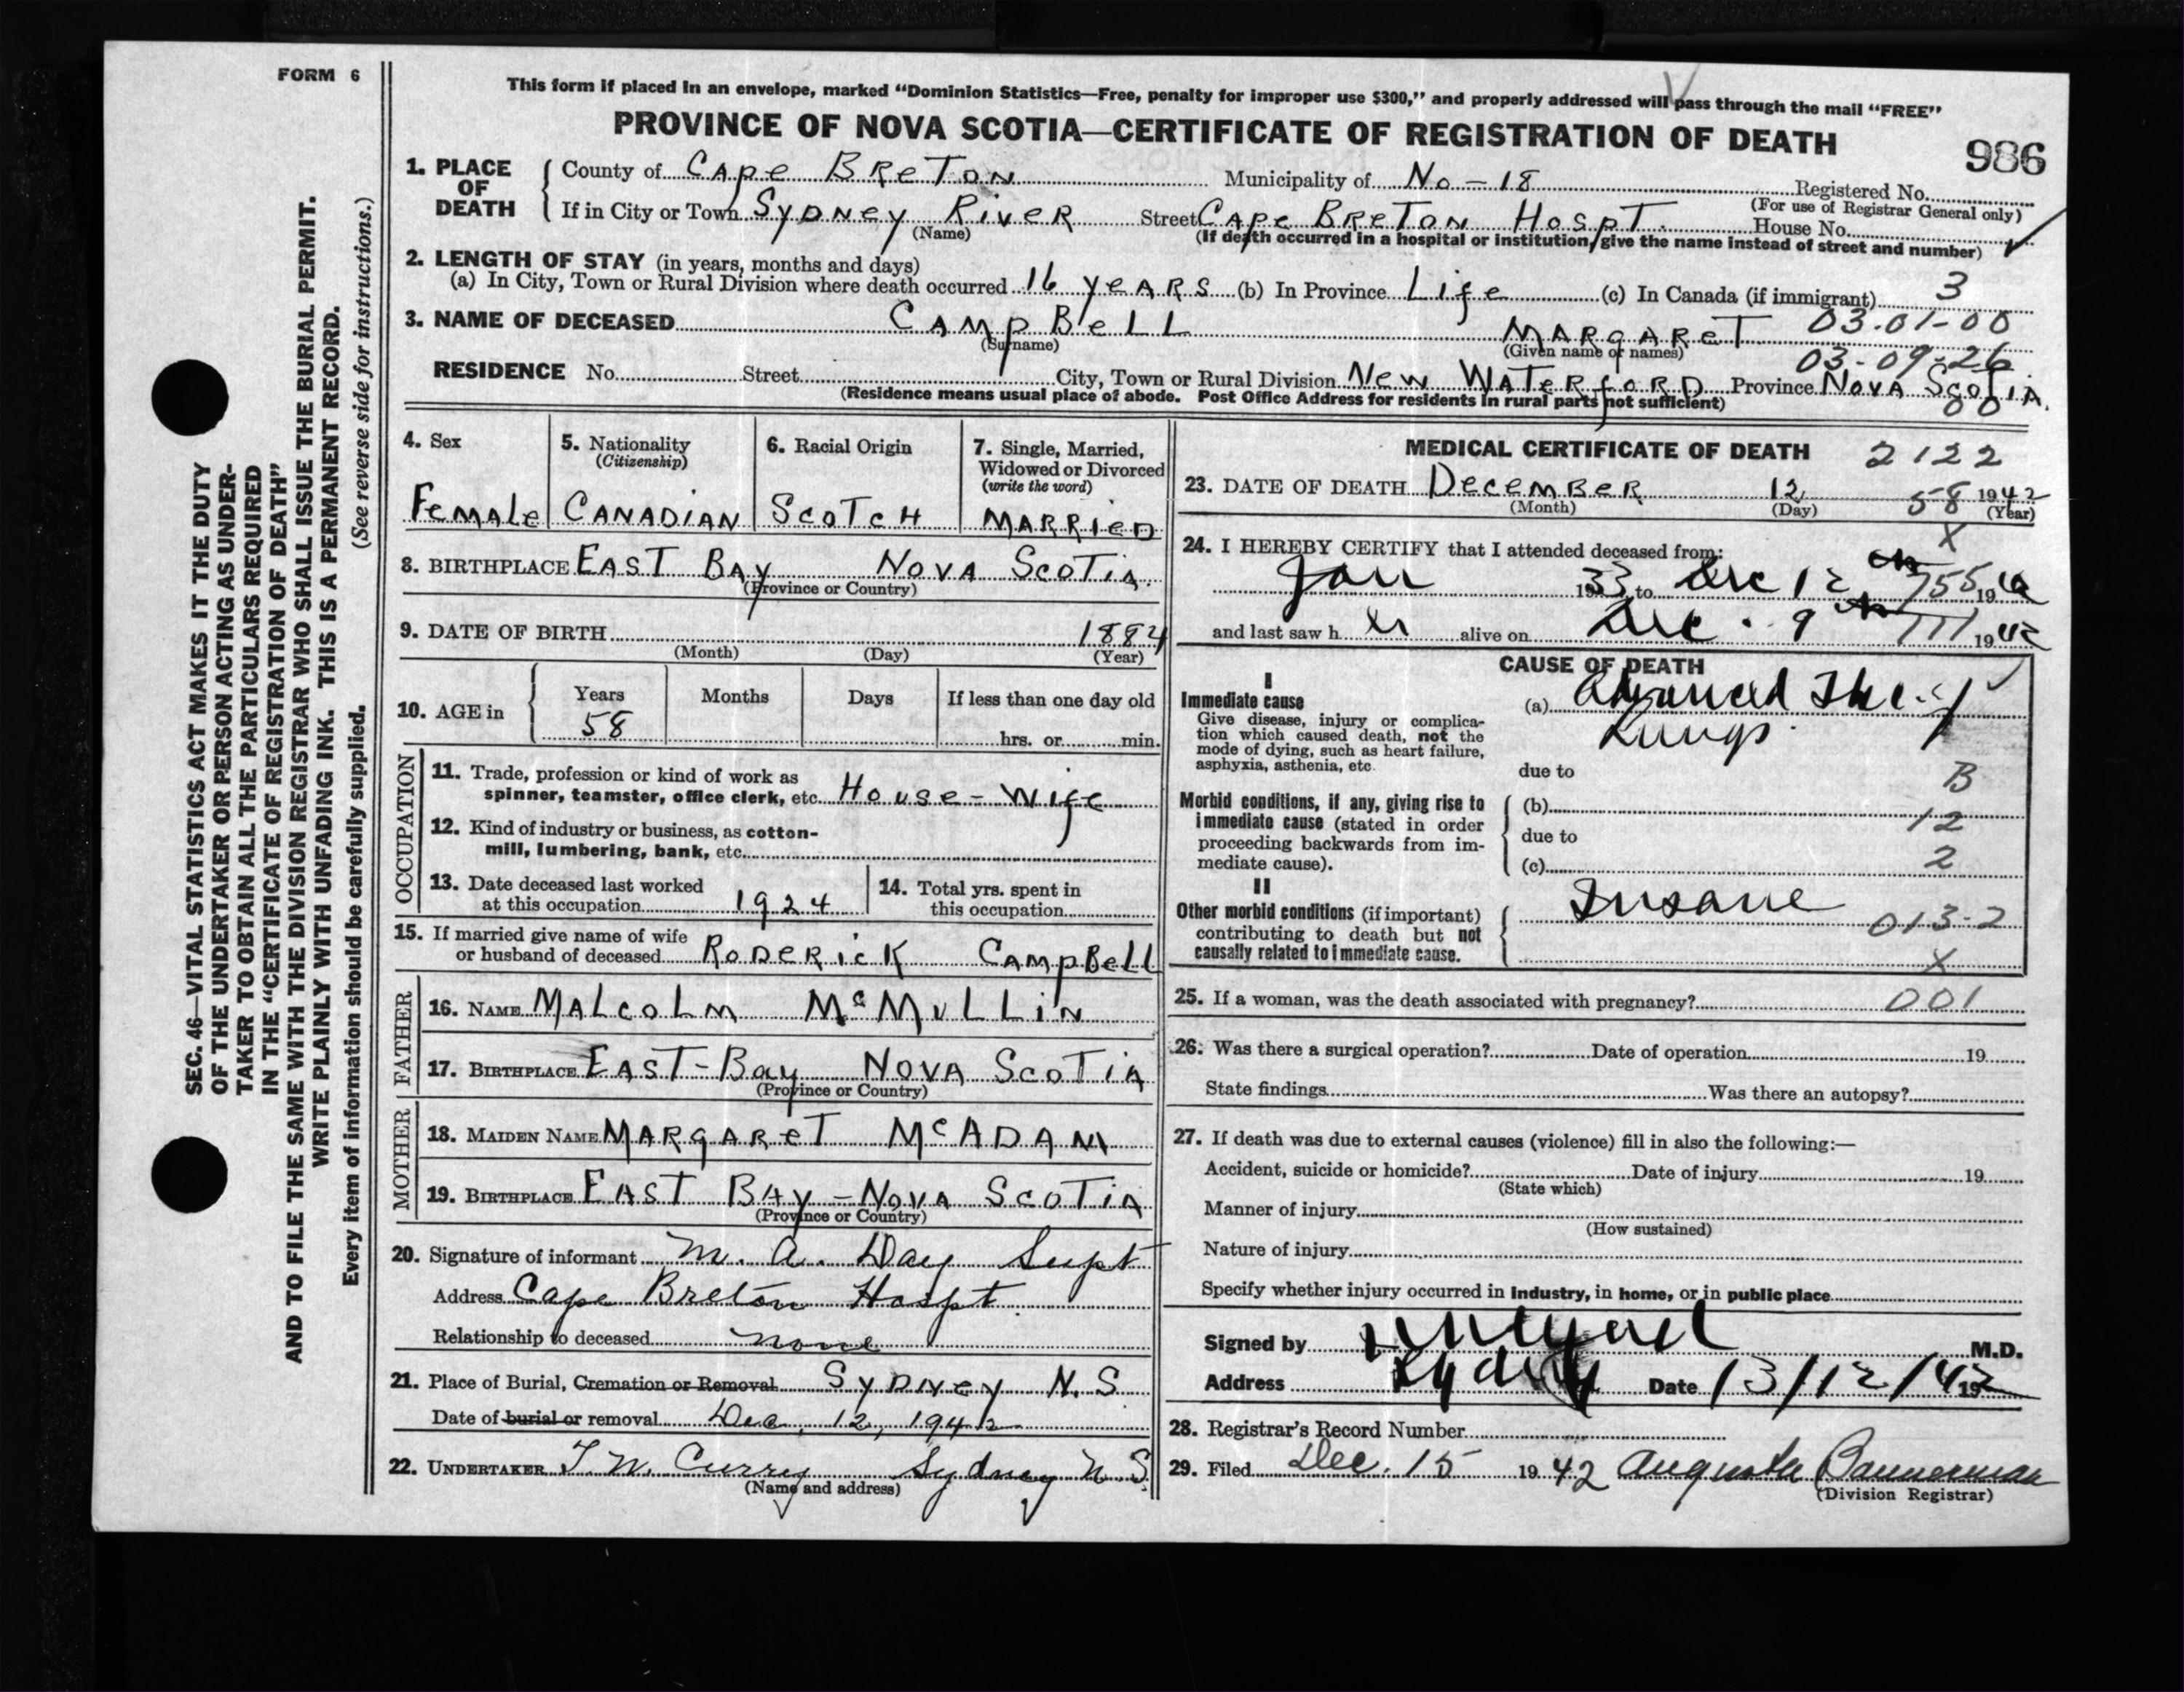 FORM 6
This form if placed in an envelope, marked “Dominion Statistics—Free, penalty for improper use $300,” and properly addressed will pass through the mail “FREE”
PROVINCE OF NOVA SCOTIA—CERTIFICATE OF REGISTRATION OF DEATH
986
1. PLACE OF DEATH
County of CAPE BRETON Municipality of No-18 Registered No.
(For use of Registrar General only)
If in City or Town SYDNEY RIVER Street CAPE BRETON HOSPT. House No.
(Name) (If death occurred in a hospital or institution, give the name instead of street and number)
2. LENGTH OF STAY (in years, months and days)
(a) In City, Town or Rural Division where death occurred 16 YEARS (b) In Province Life (c) In Canada (if immigrant) 3
3. NAME OF DECEASED CAMPBELL MARGARET 03-01-00
(Surname) (Given name or names) 03-09-26
RESIDENCE No. Street City, Town or Rural Division NEW WATERFORD Province NOVA SCOTIA.
(Residence means usual place of abode. Post Office Address for residents in rural parts not sufficient) 00
4. Sex
Female
5. Nationality
(Citizenship)
CANADIAN
6. Racial Origin
SCOTCH
7. Single, Married,
Widowed or Divorced
(write the word)
MARRIED
8. BIRTHPLACE EAST BAY NOVA SCOTIA.
(Province or Country)
9. DATE OF BIRTH 1884
(Month) (Day) (Year)
10. AGE in
Years Months Days If less than one day old
58 hrs. or min.
OCCUPATION
11. Trade, profession or kind of work as
spinner, teamster, office clerk, etc. House-Wife
12. Kind of industry or business, as cotton-
mill, lumbering, bank, etc.
13. Date deceased last worked
at this occupation 1924
14. Total yrs. spent in
this occupation
15. If married give name of wife
or husband of deceased RODERICK CAMPBELL
FATHER
16. NAME MALCOLM McMULLIN
17. BIRTHPLACE EAST-Bay NOVA SCOTIA
(Province or Country)
MOTHER
18. MAIDEN NAME MARGARET McADAM
19. BIRTHPLACE EAST BAY-NOVA SCOTIA
(Province or Country)
20. Signature of informant M. A. Day Supt
Address Cape Breton Hospt.
Relationship to deceased none
21. Place of Burial, Cremation or Removal SYDNEY N.S.
Date of burial or removal Dec. 12, 1942
22. UNDERTAKER T. W. Curry Sydney N.S.
(Name and address)
MEDICAL CERTIFICATE OF DEATH 2122
23. DATE OF DEATH DECEMBER 12 58 1942
(Month) (Day) (Year)
X
24. I HEREBY CERTIFY that I attended deceased from:
Jan 1933 to Dec 12 755 19
and last saw h er alive on Dec. 9 1942
CAUSE OF DEATH
I
Immediate cause
Give disease, injury or complica-
tion which caused death, not the
mode of dying, such as heart failure,
asphyxia, asthenia, etc.
(a) Advanced Tbc. of
Lungs.
due to
B
Morbid conditions, if any, giving rise to
immediate cause (stated in order
proceeding backwards from im-
mediate cause).
(b)
12
due to
2
(c)
II
Other morbid conditions (if important)
contributing to death but not
causally related to immediate cause.
Insane
013-2
X
25. If a woman, was the death associated with pregnancy? 001
26. Was there a surgical operation? Date of operation 19
State findings Was there an autopsy?
27. If death was due to external causes (violence) fill in also the following:—
Accident, suicide or homicide? Date of injury 19
(State which)
Manner of injury
(How sustained)
Nature of injury
Specify whether injury occurred in industry, in home, or in public place
Signed by M.D.
Address Sydney Date 13/12/42
28. Registrar's Record Number
29. Filed Dec. 15 1942 Augusta Bannerman
(Division Registrar)
SEC. 46—VITAL STATISTICS ACT MAKES IT THE DUTY
OF THE UNDERTAKER OR PERSON ACTING AS UNDER-
TAKER TO OBTAIN ALL THE PARTICULARS REQUIRED
IN THE “CERTIFICATE OF REGISTRATION OF DEATH”
AND TO FILE THE SAME WITH THE DIVISION REGISTRAR WHO SHALL ISSUE THE BURIAL PERMIT.
WRITE PLAINLY WITH UNFADING INK. THIS IS A PERMANENT RECORD.
Every item of information should be carefully supplied. (See reverse side for instructions.)